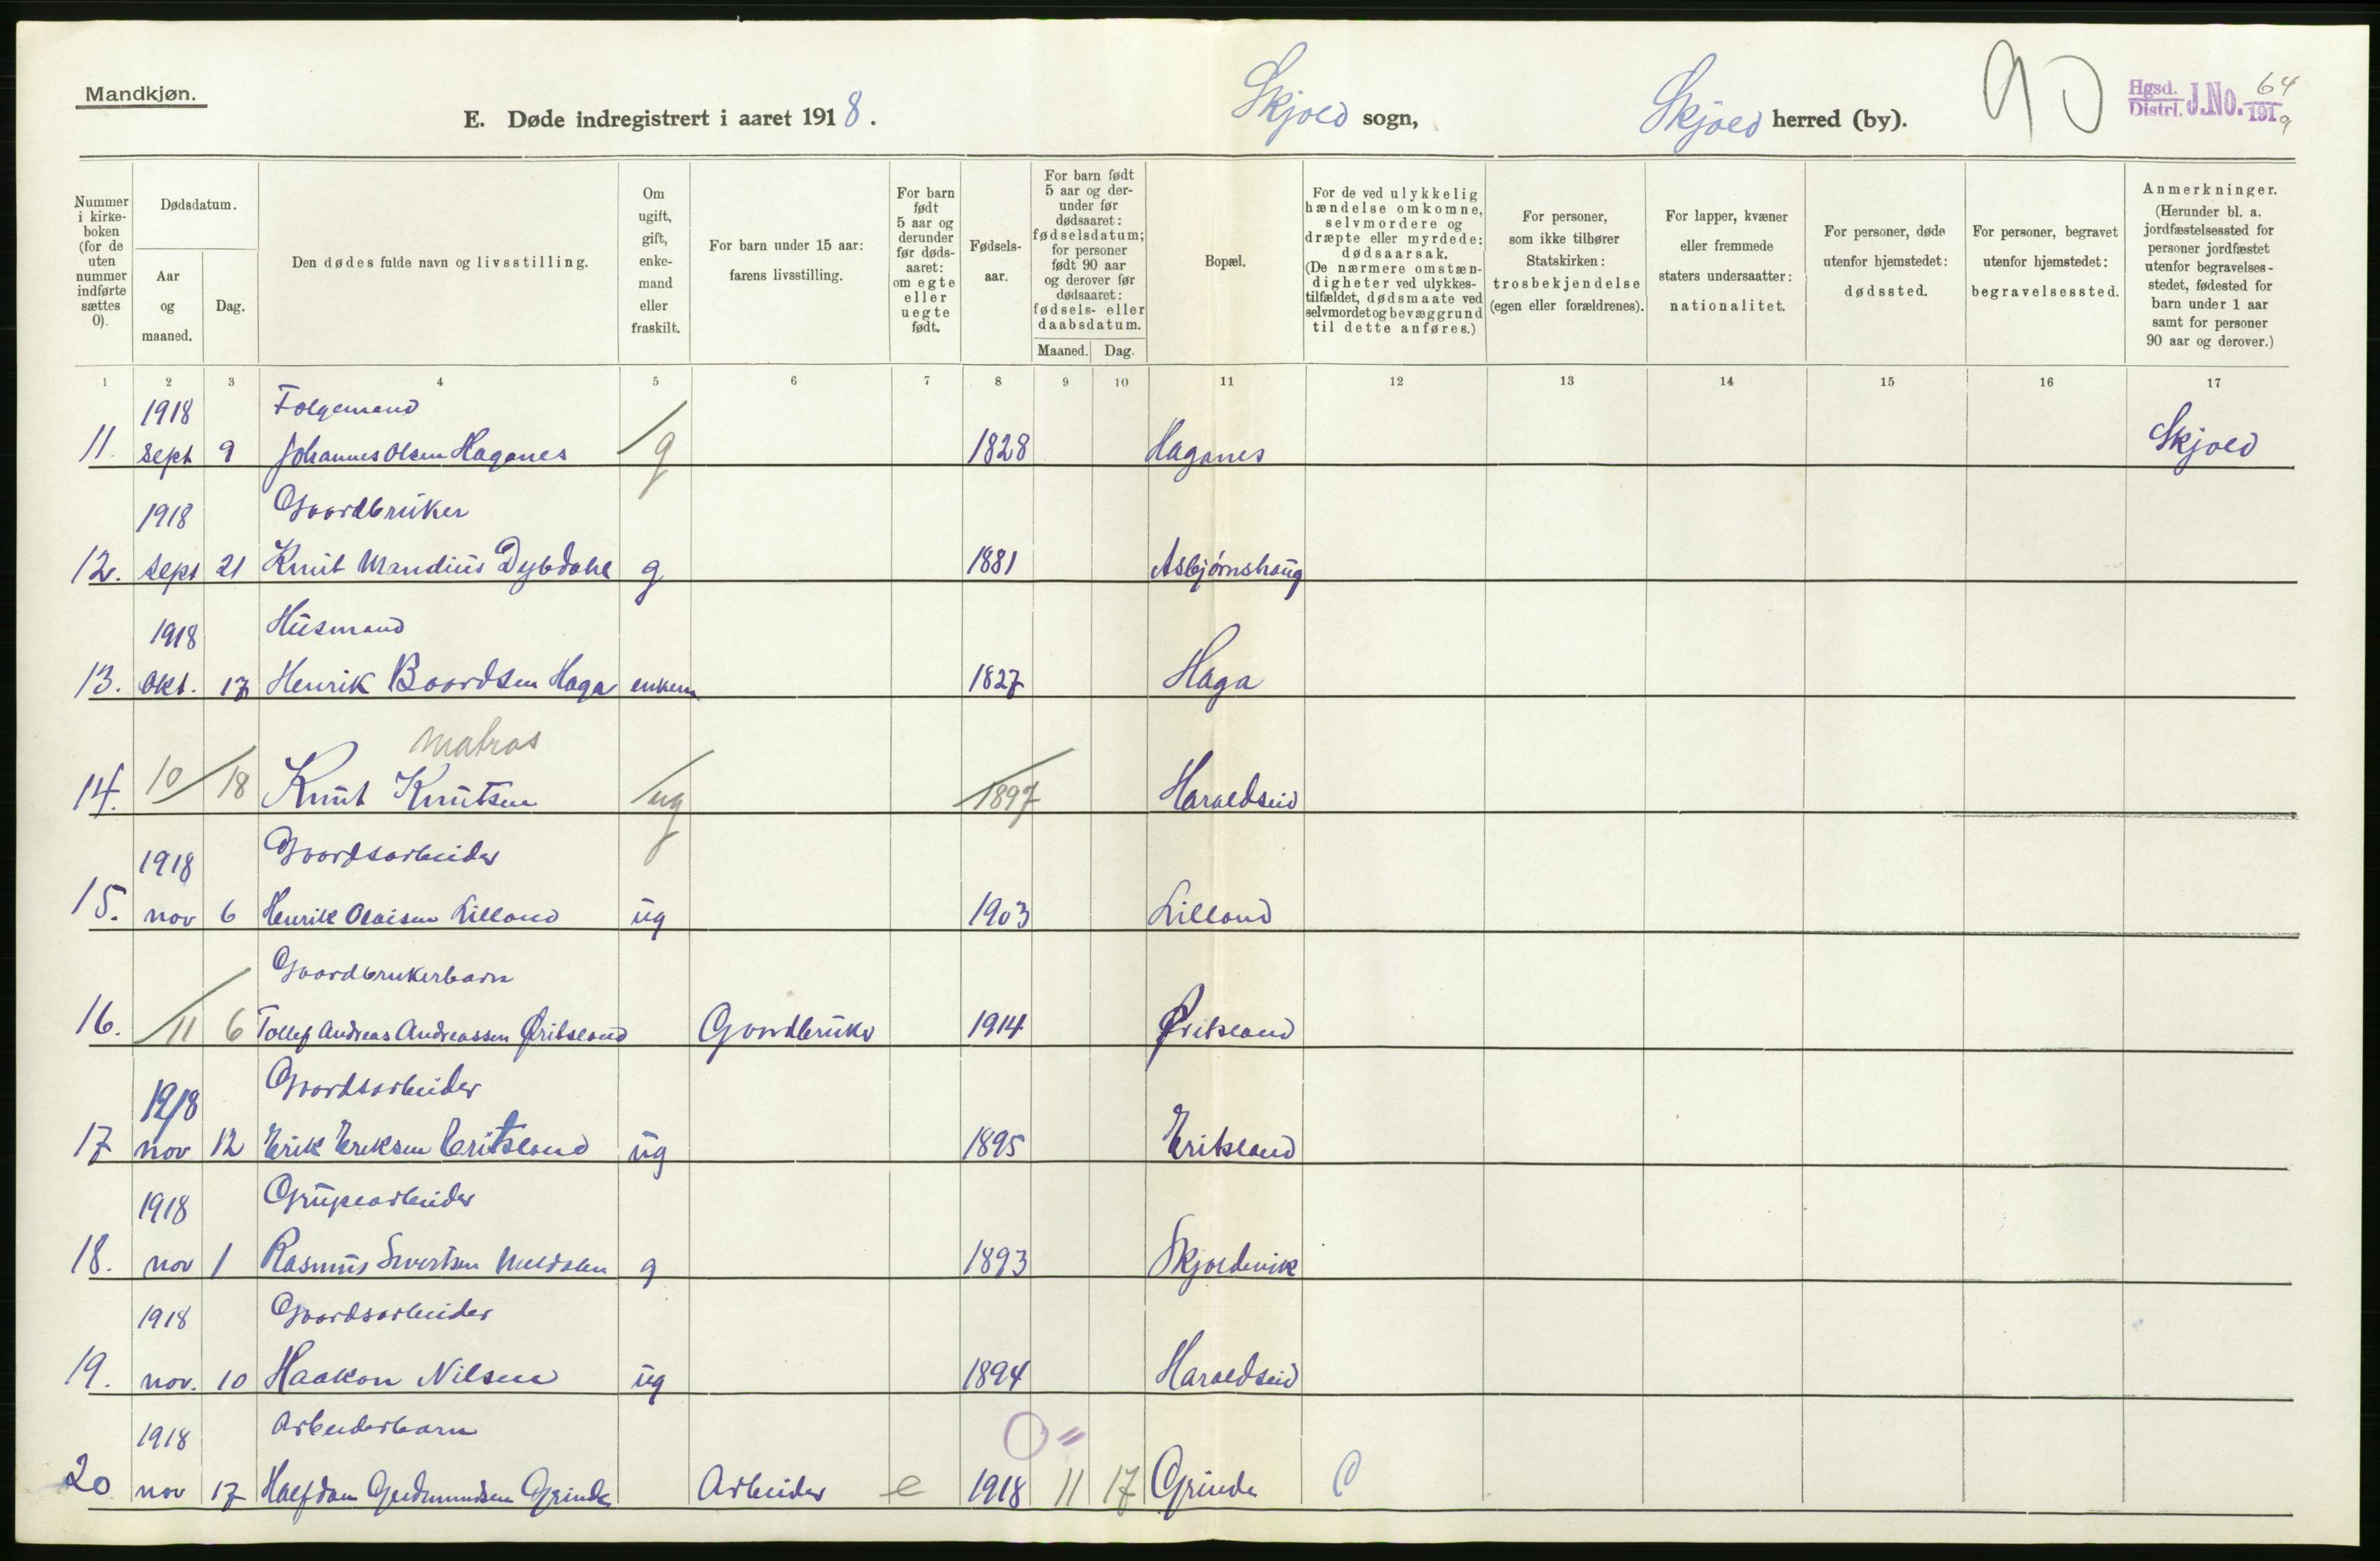 Mandkjøn.
E. Døde indregistrert i aaret 1918.
Skjold sogn,
Skjold herred (by).
90
Hgsd. Distrl. J.No. 64/1919
Nummer i kirke-boken (for de uten nummer indførte sættes 0).
Dødsdatum.
Aar og maaned.
Dag.
Den dødes fulde navn og livsstilling.
Om ugift, gift, enke-mand eller fraskilt.
For barn under 15 aar: farens livsstilling.
For barn født 5 aar og derunder før døds-aaret: om egte eller uegte født.
Fødsels-aar.
For barn født 5 aar og der-under før dødsaaret: fødselsdatum; for personer født 90 aar og derover før dødsaaret: fødsels- eller daabsdatum.
Maaned. Dag.
Bopæl.
For de ved ulykkelig hændelse omkomne, selvmordere og dræpte eller myrdede: dødsaarsak. (De nærmere omstæn-digheter ved ulykkes-tilfældet, dødsmaate ved selvmordet og bevæggrund til dette anføres.)
For personer, som ikke tilhører Statskirken: trosbekjendelse (egen eller forældrenes).
For lapper, kvæner eller fremmede staters undersaatter: nationalitet.
For personer, døde utenfor hjemstedet: dødssted.
For personer, begravet utenfor hjemstedet: begravelsessted.
Anmerkninger. (Herunder bl. a. jordfæstelsessted for personer jordfæstet utenfor begravelses-stedet, fødested for barn under 1 aar samt for personer 90 aar og derover.)
1 2 3 4 5 6 7 8 9 10 11 12 13 14 15 16 17
1918 Folgemand
11. Sept 9 Johannes Olsen Haganes g 1828 Haganes Skjold
1918 Gaardbruker
12. Sept 21 Knut Mandius Dybdahl g 1881 Asbjørnshaug
1918 Husmand
13. Okt. 17 Henrik Baardsen Haga enkem 1827 Haga
matros
14. 10 18 Knut Knutsen ug 1897 Haraldseid
1918 Gaardsarbeider
15. nov 6 Henrik Olaisen Lilland ug 1903 Lilland
Gaardbrukerbarn
16. 11 6 Tollef Andreas Andreassen Øritsland Gaardbruker 1914 Øritsland
1918 Gaardsarbeider
17 nov 12 Erik Eriksen Eritsland ug 1895 Eritsland
1918 Grubearbeider
18. nov 1 Rasmus Sivertsen g 1893 Skjoldevik
1918 Gaardsarbeider
19. nov. 10 Haakon Nilsen ug 1894 Haraldseid
1918 Arbeiderbarn 0 "
20 nov 17 Halfdan Gudmundsen Grinde Arbeider e 1918 11 17 Grinde